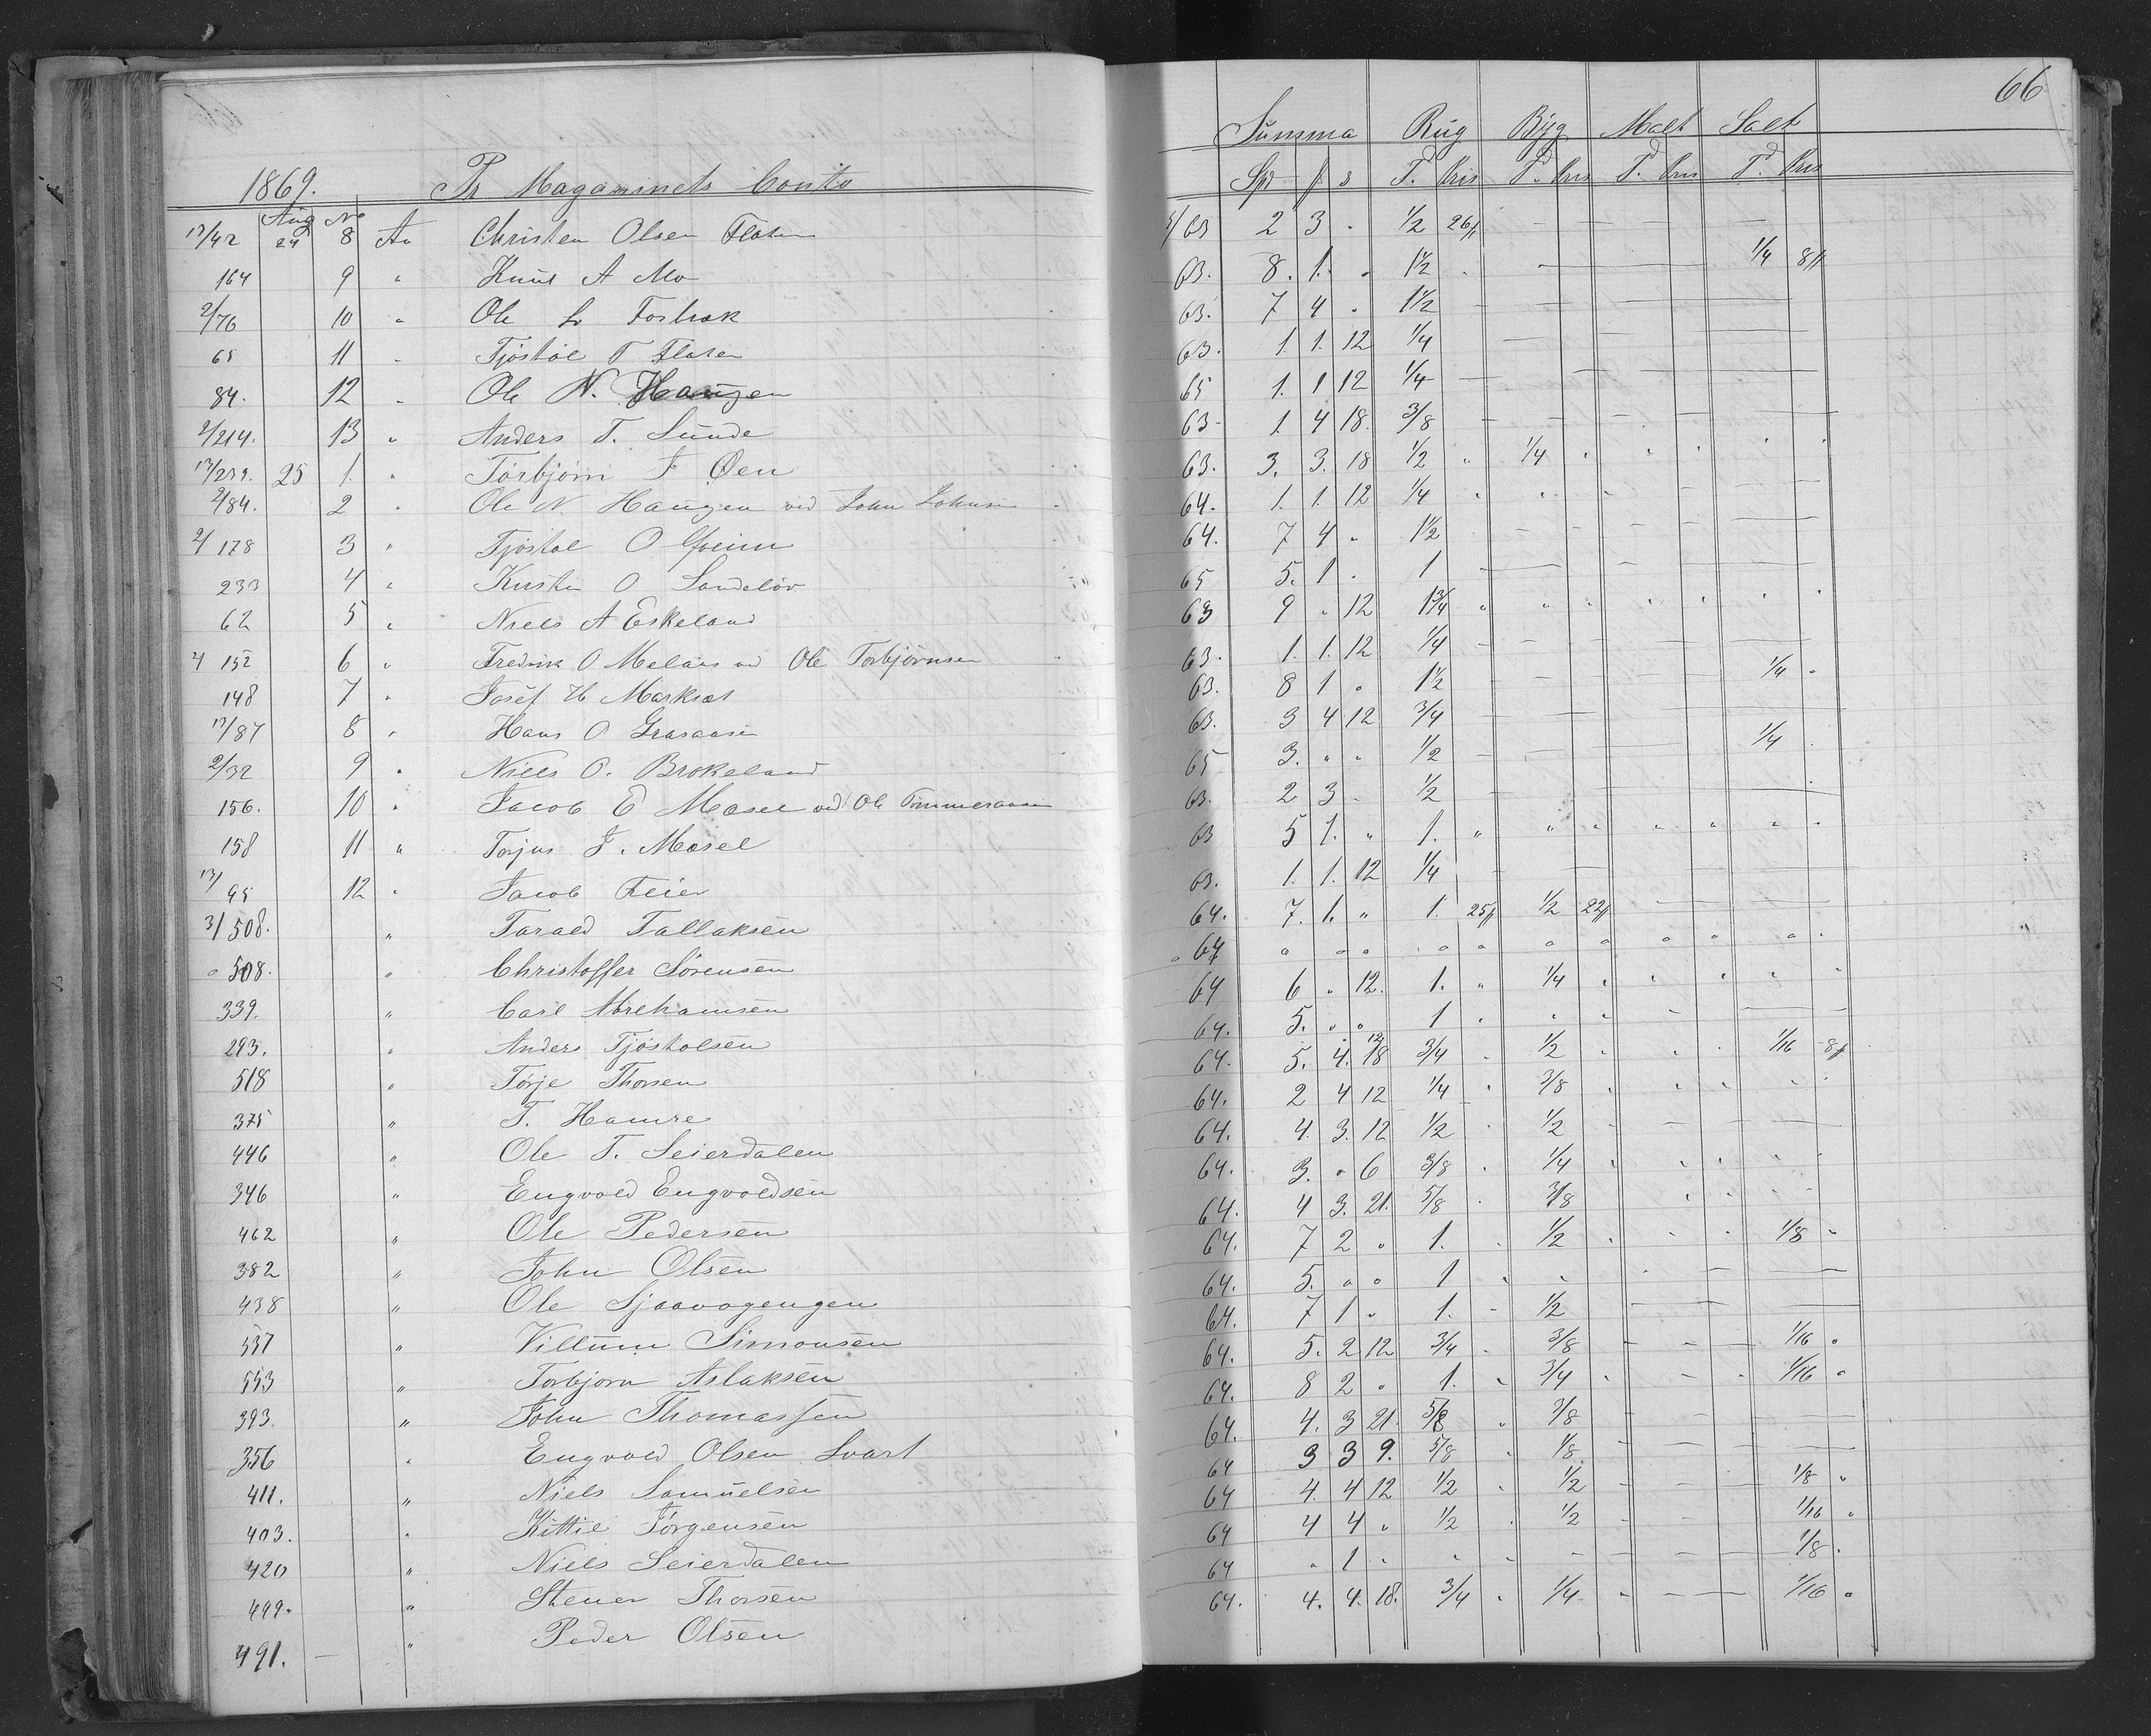 66
Summa Rug Byg Malt Salt
1869. Pr Magazinets Conto
Spd ß s T. Pris Td Pris Td Pris Td Pris
Aug No
13/42 24 8 An Christen Olsen Flaten 5/63 2 3 . 1/2 26ß — — —
164 9 " Knud A Mo 63. 8. 1. . 1 1/2 . — 1/4 8ß
2/76 10 " Ole L. 63. 7 4 . 1 1/2 — — —
65 11 " Tjöstöl T Flaten 63. 1. 1. 12 1/4 — —
84. 12 " Ole N. Haugen 65 1. 1 12 1/4 — — —
2/214. 13 " Anders T. Sunde 63- 1. 4 18. 3/8 — — —
13/239. 25 1. " Torbjörn J Öen 63. 3. 3. 18 1/2 " 1/4 " " " " "
2/84. 2 " Ole N Haugen ved John Johnsen 64. 1. 1. 12 1/4 " " " — —
2/178 3 " Tjöstol O 64. 7 4 " 1 1/2 — — —
233 4 " Kirsten O Landelöv 65 5. 1 . 1 — — —
62 5 " Niels A Eskeland 63 9 " 12 1 3/4 " " " " " " "
2/152 6 " Fredrik O ved Ole Torbjörnsen 63. 1. 1. 12 1/4 — — —
148 7 " Josef H Marksæt 63. 8 1 . 1 1/2 — — — 1/4 "
13/87 8 " Hans O Grasaasen 63. 3 4 12 3/4 — — —
2/32 9 " Niels O. Brokeland 65 3. " " 1/2 — — — 1/4 .
156. 10 " Jacob E Mosel ved Ole Tommeraasen 63. 2 3 . 1/2 — — —
158 11 " Torjus J. Mosel 63 5 1. " 1. " " " " " " "
13/95 12 " Jacob Feier 63. 1. 1. 12 1/4 — — —
3/508. " Tarald Tallaksen 64. 7. 1. " 1. 25ß 1/2 22ß — — —
" 508. " Christoffer Sörensen " 64 " " " " " " " " " " "
339. " Carl Abrehamsen 64 6 " 12. 1. " 1/4 " " " " "
293. " Anders Tjöstolsen 64. 5. " " 1 " " " — —
518 " Törje Thorsen 64. 5. 4. 18 12 3/4 " 1/2 " " " 1/16 8ß
375 " T. Hamre 64. 2 4 12 1/4 " 3/8 " " " " "
446 " Ole T. Seierdalen 64. 4. 3. 12 1/2 " 1/2 — — —
346 " Engvold Engvoldsen 64. 3. " 6 3/8 " 1/4 " " " " "
462 " Ole Pedersen 64. 4 3. 21. 5/8 " 3/8 " " " "
382 " John Olsen 64. 7 2 " 1. " 1/2 " " " 1/8 "
438 " Ole 64. 5. " " 1 " " " — —
537 " Villum Simonsen 64. 7 1 " 1. " 1/2 — — —
553 " Torbjorn Aslaksen 64. 5. 2 12 3/4 " 3/8 — — 1/16 "
393. " John Thomassen 64. 8 2 " 1. " 3/4 " — " 1/16 "
356 " Engvold Olsen Svart 64. 4. 3 21. 5/8 " 3/8 — — —
411. " Niels Samuelsen 64 3 3 9. 5/8 " 1/8 — — —
403. " Kittil Jörgensen 64 4. 4 12 1/2 " 1/2 — — 1/8 "
420 " Niels Seierdalen 64 4 4 " 1/2 " 1/2 — — 1/16 "
499. " Stener Thorsen 64 " 1 " " " — — — 1/8 .
491. — " Peder Olsen 64. 4. 4. 18. 3/4 " 1/4 " — — 1/16 "